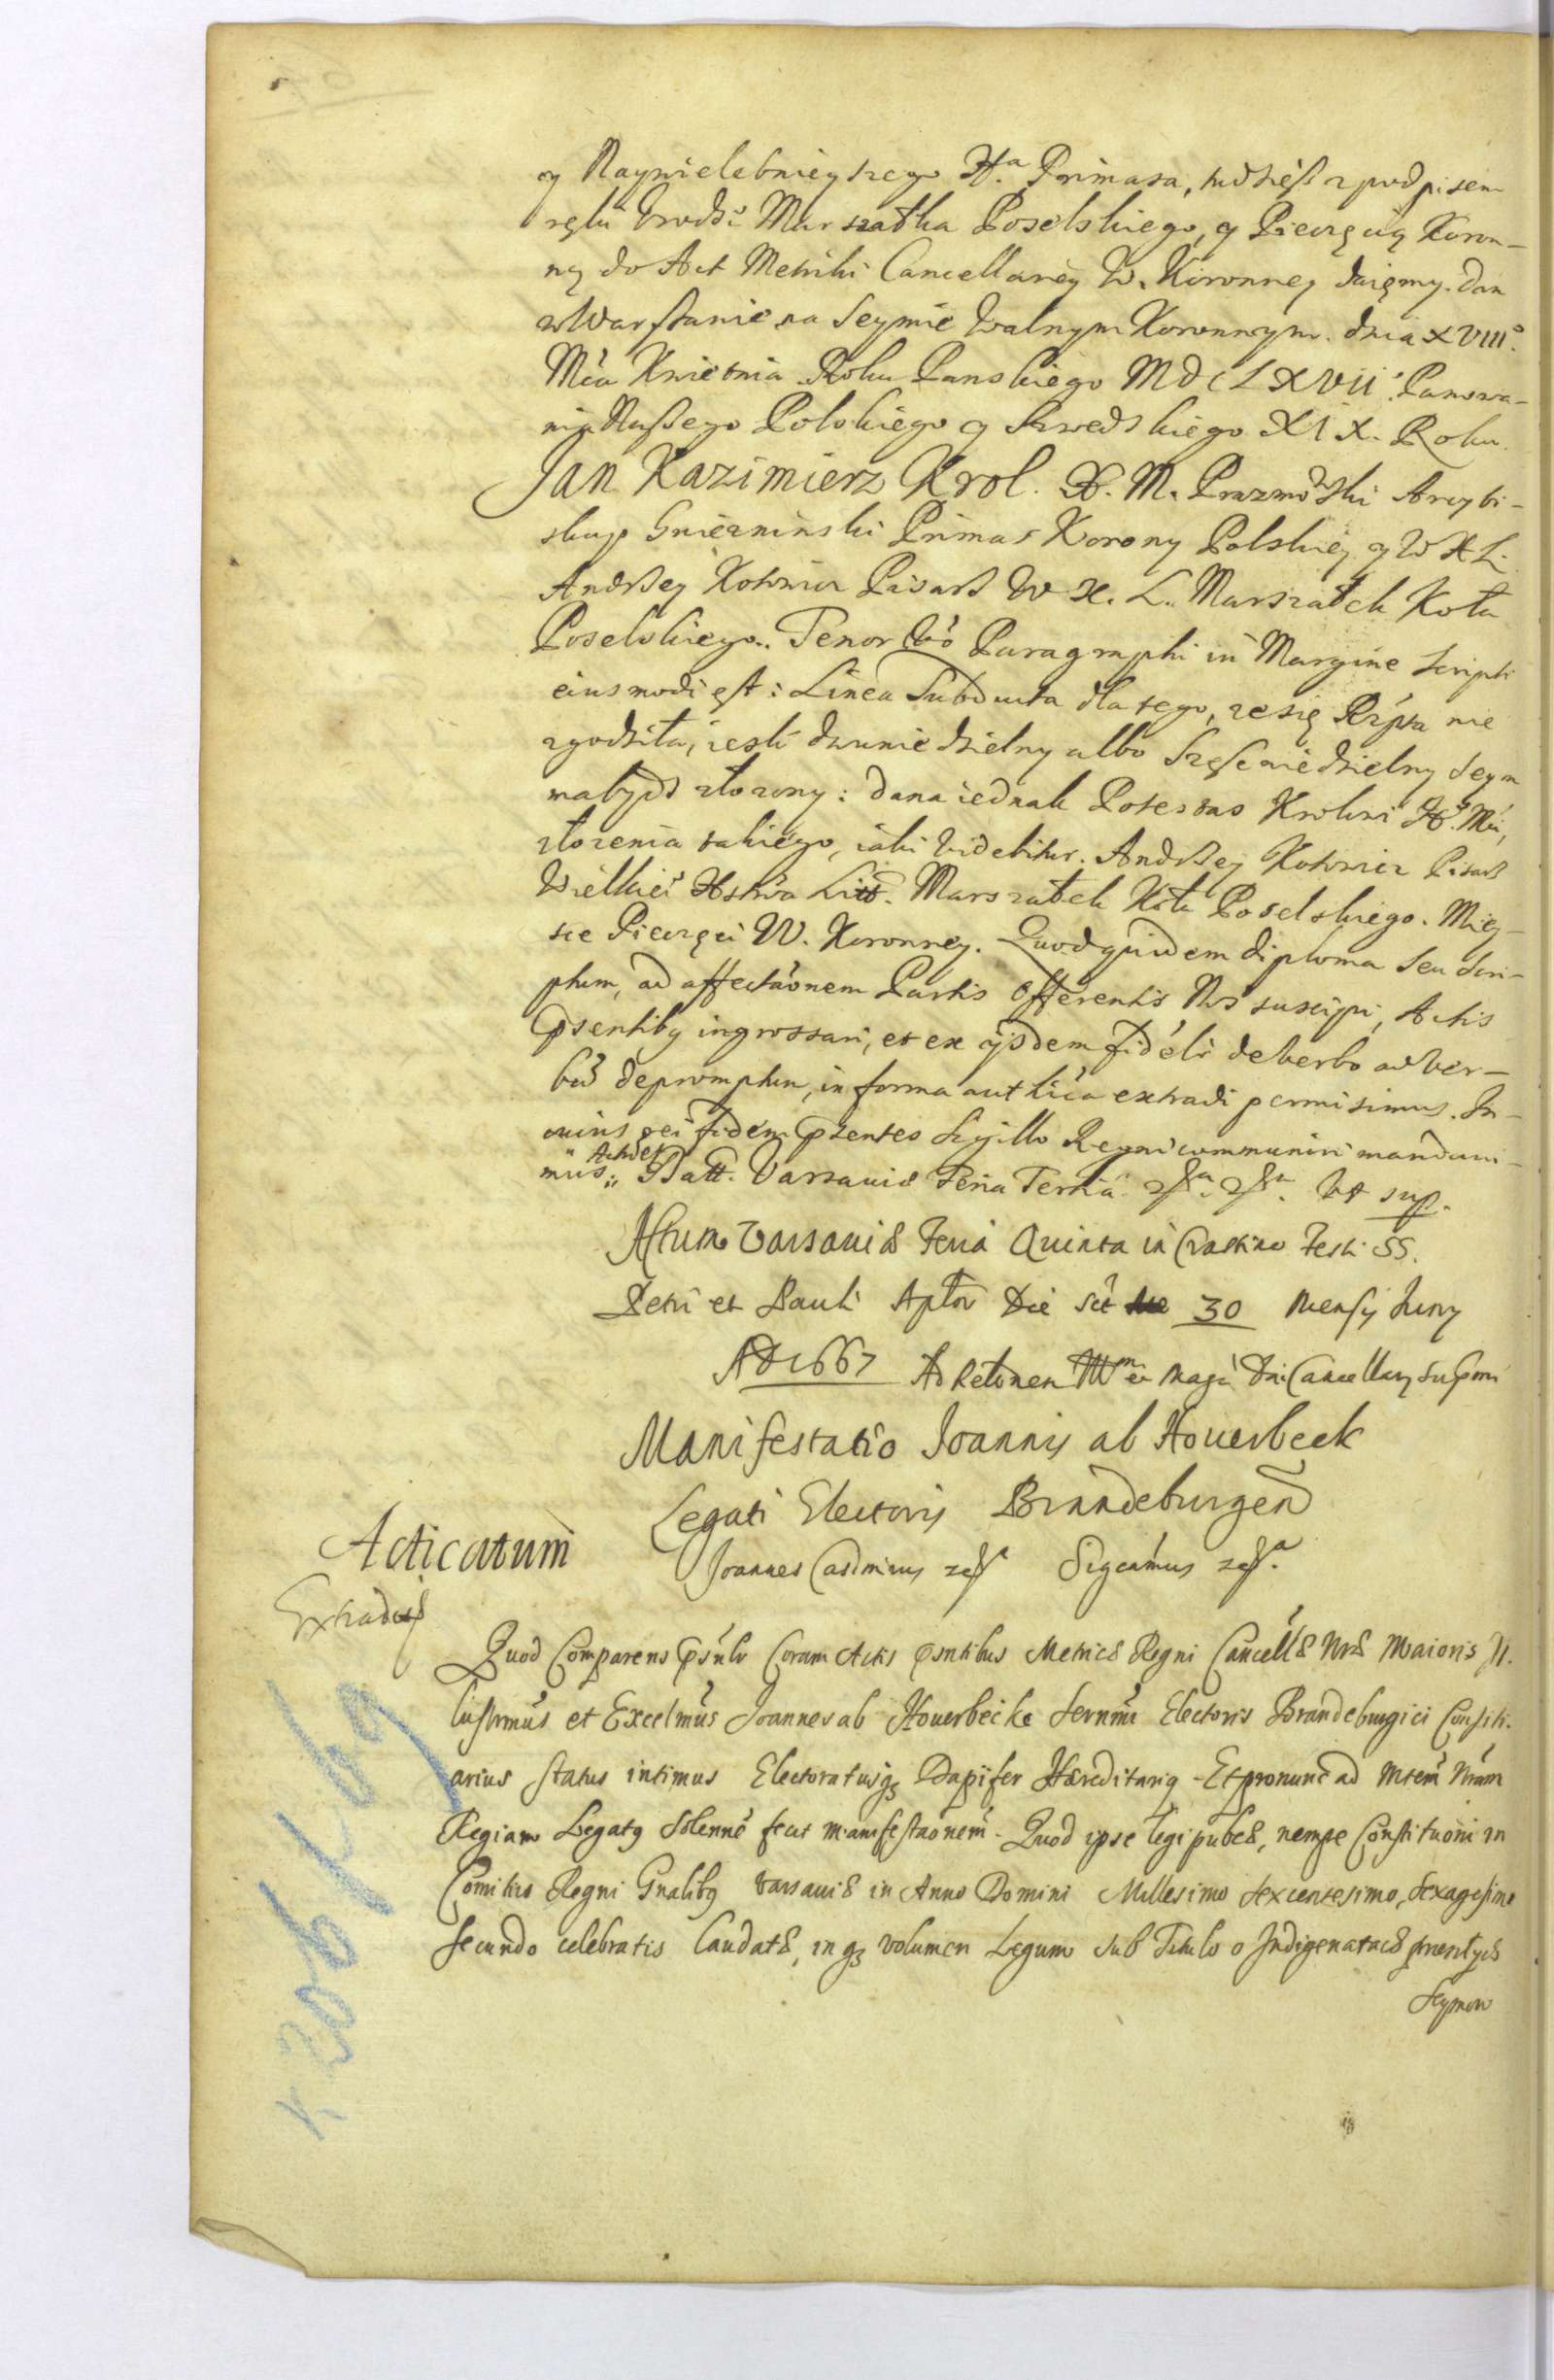 y Naywielebnieyszego X.ª Primasa, tudzież z podpisem
ręki Urodź: Marszałka Poselskiego, y Pieczęcią Koron-
ną do Act Metriki Cancellaryey W. Koronney daięmy. Dan
w Warszawie na Seymie Walnym Koronnym. dnia XVIII°.
Mca Kwietnia Roku Panskiego MDCLXVII. Panowa-
nia Naszego Polskiego y Szwedzkiego XIX. Roku.
Jan Kazimierz Krol. X. M. Prazmowski Arcybi-
skup Gniezninski Primas Korony Polskiey y W X L.
Andrzey Kotowicz Pisarz W X. L. Marszałek Koła
Poselskiego. Tenor vo Paragraphi in Margine scripti
eiusmodi est: Linea Subducta dla tego, ze się Rzpta nie
zgodziła, iesli dwuniedzielny albo Sześcniedzielny Seym
ma bydz złozony: dana iednak Potestas Krolowi Je° Mci,
złozenia takiego, iaki videbitur. Andrzey Kotowicz Pisarz
Wielkie° Xstwa Litt. Marszałek Koła Poselskiego. Miey-
sce Pieczęci W. Koronney. Quod quidem diploma seu Scri-
ptum, ad affectaonem Partis Offerentis Nos suscipi, Actis
psentiby ingrossari, et ex ijsdem fideli de verbo ad ver-
bu depromptum, in forma authca extradi permisimus. In
cuius rei fidem psentes Sigillo Regni communiri mandavi-
mus. Act et Datt. Varsaviæ Feria Tertia. etc. etc. Ut sup.
Actum Varsaviæ Feria Quinta in Crastino Festi SS.
Petri et Pauli Aptor Die sct 30 Mensis Juny
AD 1667 Ad Relonem Illm et Magci Dni Cancellary Supmi
Manifestatio Joannis ab Houerbeek
Legati Electoris Brandeburgen
Acticatum
Joannes Casimirus etc. Significamus etc.
Extradit
Quod Comparens psnlr Coram Actis psntibus Metrices Regni Cancellæ Nræ Maioris Il-
lustrmus et Excelmus Joannes ab Houerbecke Sernmi Electoris Brandeburgici Consili-
arius status intimus Electoratusq Dapifer Hæreditariq Et pro nunc ad Mtem Nram
Regiam Legatq Solenne fecit manifestaonem. Quod ipse legi pubcæ, nempe Constituoni in
Comitiis Regni Gnaliby Varsaviæ in Anno Domini Millesimo Sexcentesimo, Sexagesimo
Secundo celebratis laudatæ, inq volumen Legum sub Titulo o Indigenatach przeszłych
Seymow